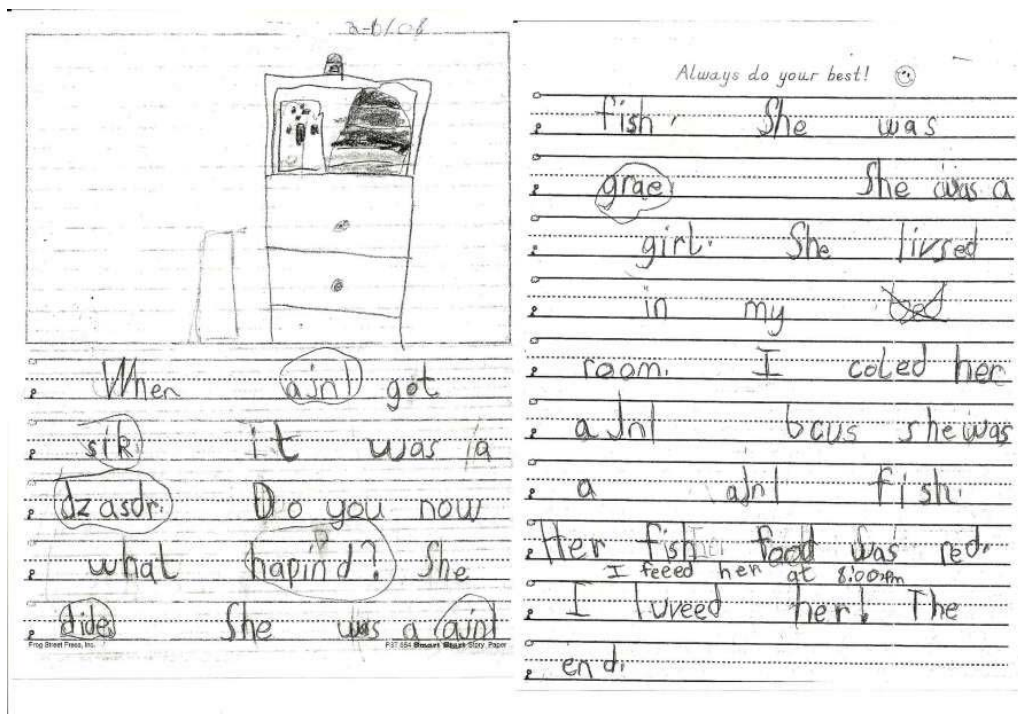 2-6/08
When ajnl got
sik it was a
dzasdr. Do you now
what hapind? She
dide She was a ajnl
Frog Street Press, Inc.
FST 054 Smart Start Story Paper
Always do your best!
fish. She was
grae. She was a
girl. She livsed
in my bed
room. I coled her
ajnl bcus she was
a ajnl fish.
Her fish food was red.
I feeed her at 8:00pm
I luveed her! The
end.